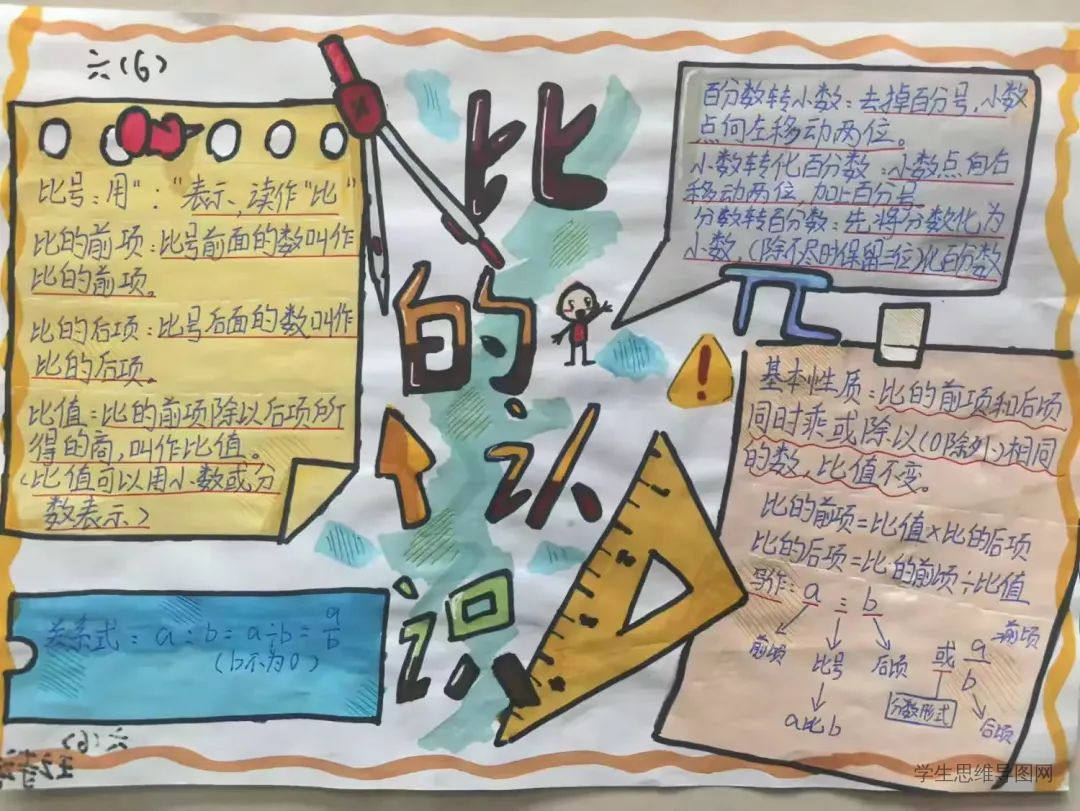 六(6)
比的认识
比号：用"："表示，读作"比"
比的前项：比号前面的数叫作
比的前项。
比的后项：比号后面的数叫作
比的后项。
比值：比的前项除以后项所
得的商，叫作比值。
(比值可以用小数或分
数表示)
关系式：a：b=a÷b=a/b
(b不为0)
百分数转小数：去掉百分号，小数
点向左移动两位。
小数转化百分数：小数点向右
移动两位，加上百分号
分数转百分数：先将分数化为
小数，(除不尽时保留三位)化百分数
基本性质：比的前项和后项
同时乘或除以(0除外)相同
的数，比值不变。
比的前项=比值×比的后项
比的后项=比的前项÷比值
写作：a：b
前项 比号 后项
a比b
或 a/b
前项
分数形式
后项
六(6)
学生思维导图网